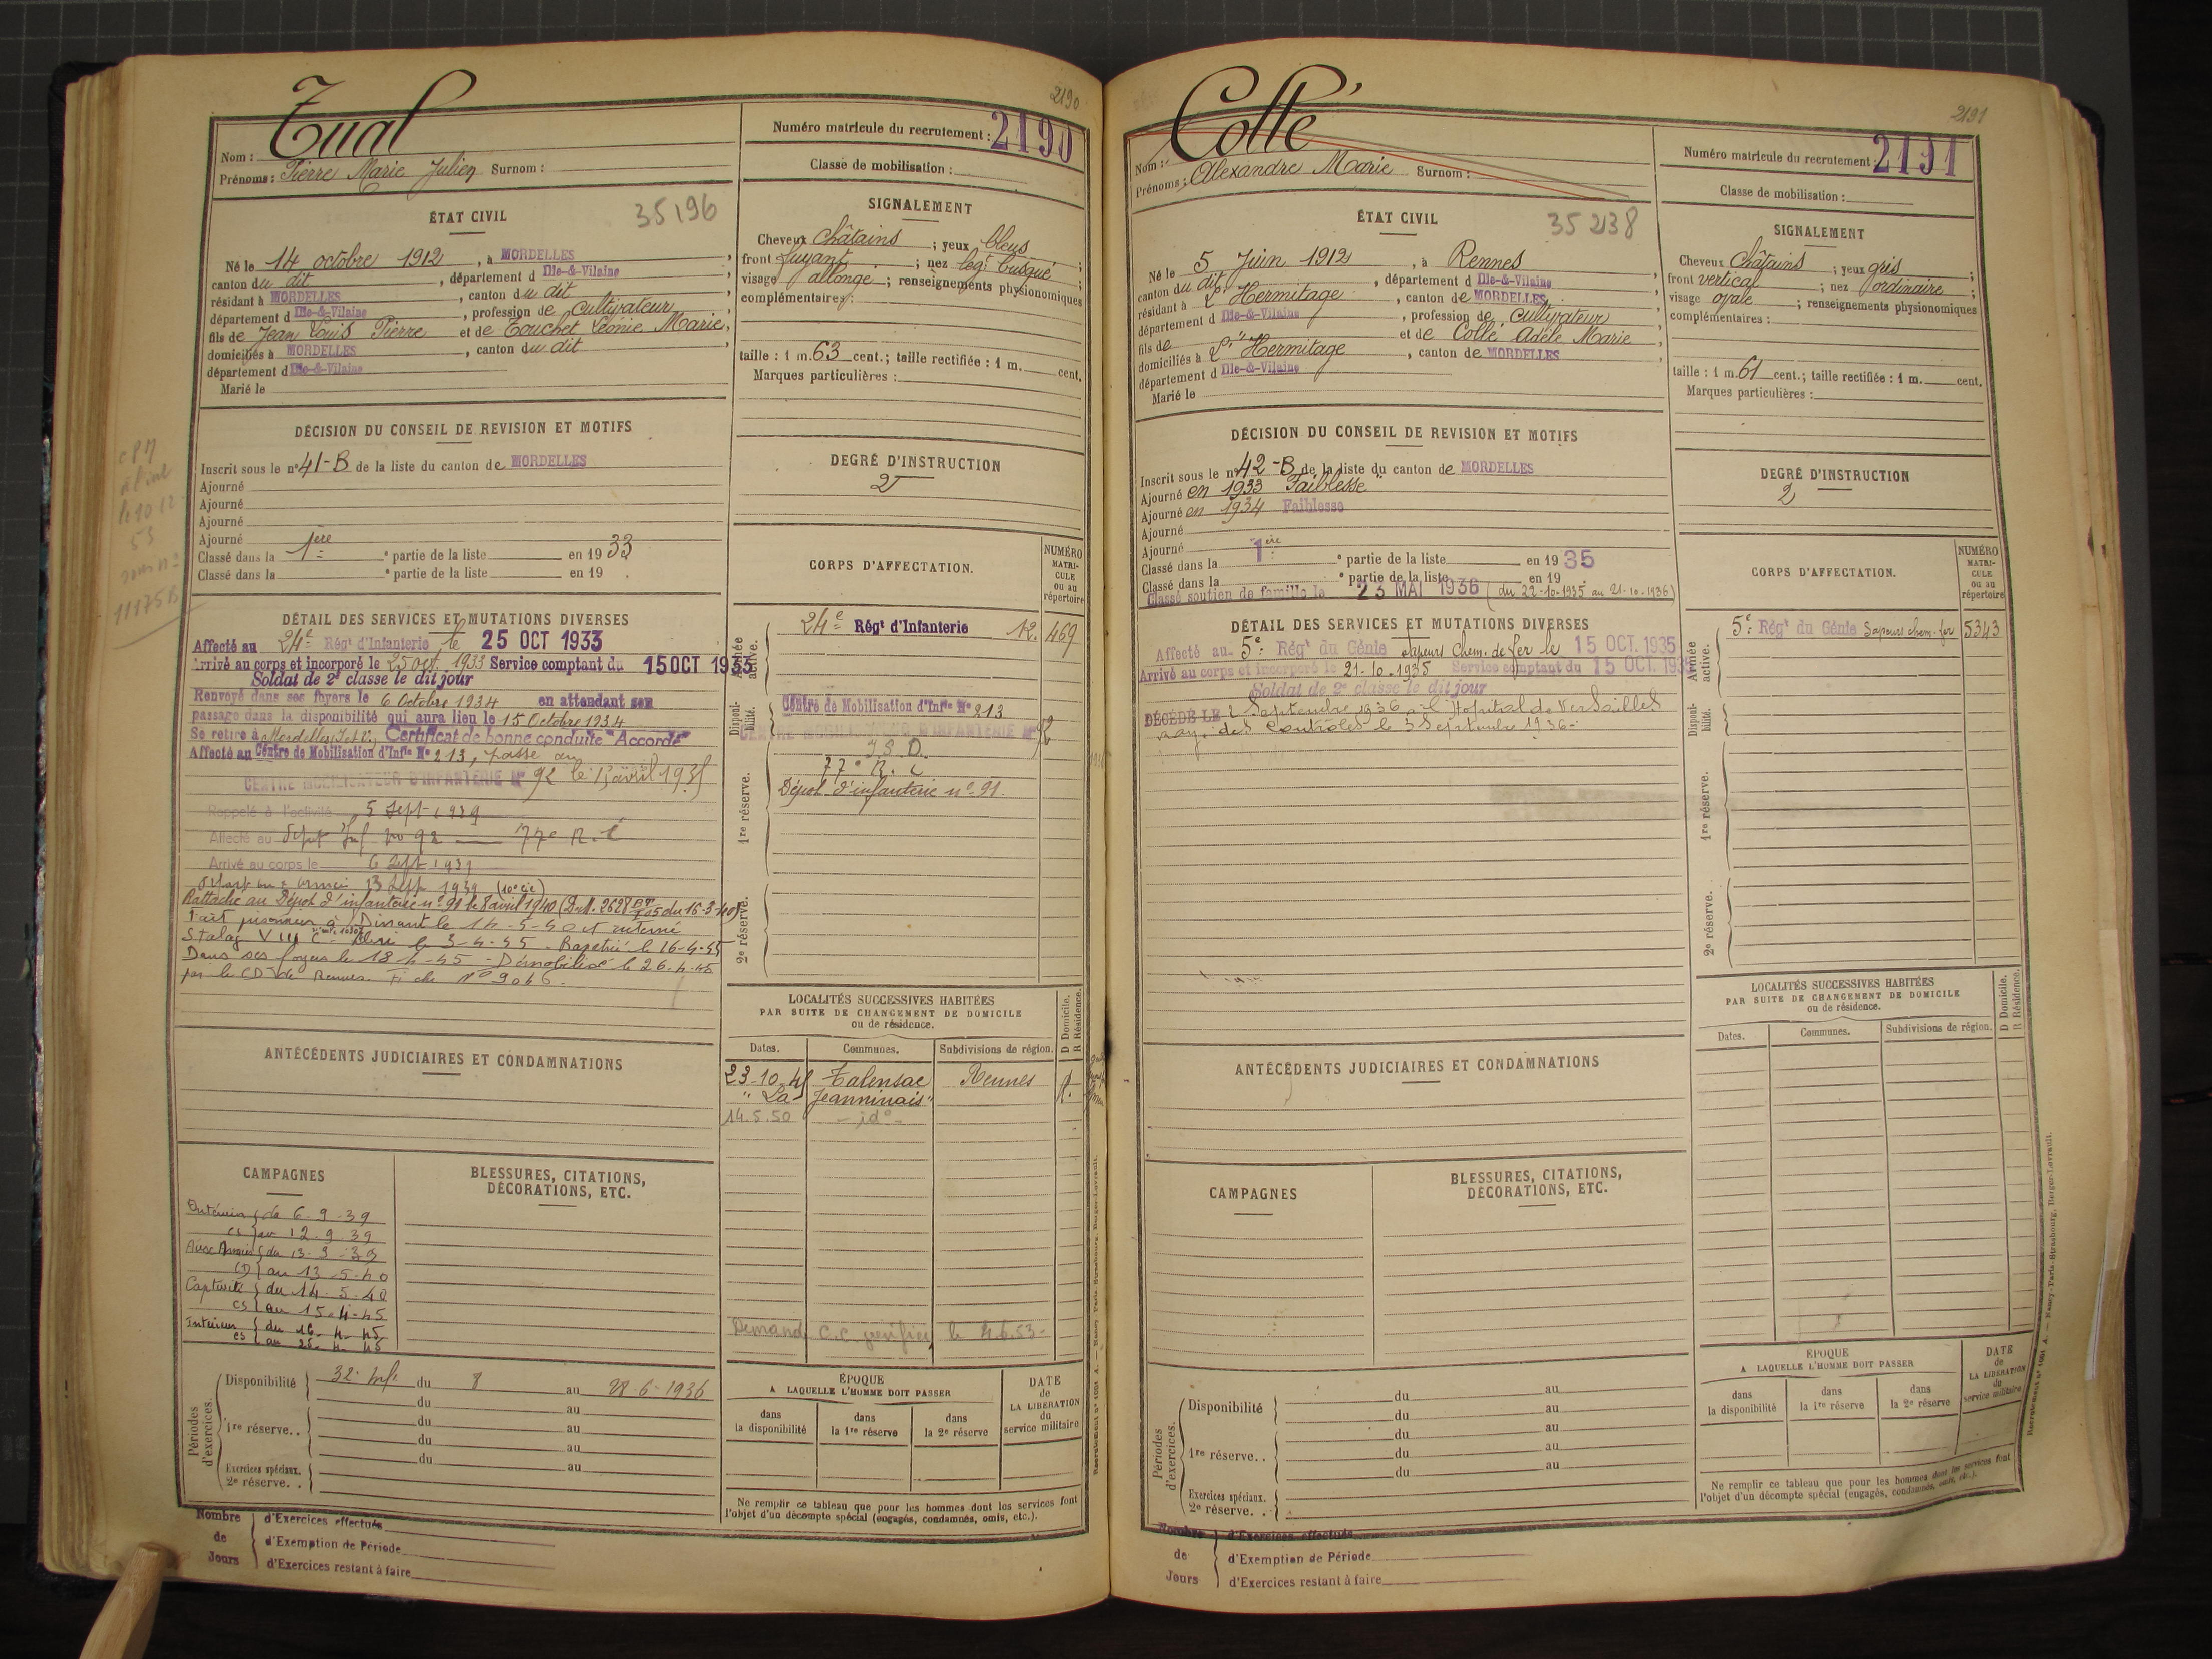 2190
Tual
Nom :
Prénoms : Pierre Marie Julien Surnom :
Numéro matricule du recrutement : 2190
Classe de mobilisation :
ÉTAT CIVIL
35196
Né le 14 octobre 1912, à MORDELLES,
canton du dit, département d Ille-&-Vilaine,
résidant à MORDELLES, canton du dit,
département d Ille-&-Vilaine, profession de Cultivateur,
fils de Jean Louis Pierre et de Touchet Léonie Marie,
domiciliés à MORDELLES, canton du dit
département d Ille-&-Vilaine
Marié le
SIGNALEMENT
Cheveux châtains ; yeux bleus ;
front fuyant ; nez légt busqué ;
visage allongé ; renseignements physionomiques
complémentaires :
taille : 1 m. 63 cent.; taille rectifiée : 1 m. cent.
Marques particulières :
DÉCISION DU CONSEIL DE REVISION ET MOTIFS
Inscrit sous le n° 41-B de la liste du canton de MORDELLES
Ajourné
Ajourné
Ajourné
Ajourné
Classé dans la 1ère e partie de la liste en 1933
Classé dans la e partie de la liste en 19 .
DEGRÉ D'INSTRUCTION
2
le 10 12
53
11175B
DÉTAIL DES SERVICES ET MUTATIONS DIVERSES
Affecté au 24e Régt d'Infanterie le 25 OCT 1933
Arrivé au corps et incorporé le 25 oct. 1933 Service comptant du 15 OCT 1933
Soldat de 2e classe le dit jour
Renvoyé dans ses foyers le 6 Octobre 1934 en attendant son
passage dans la disponibilité qui aura lieu le 15 Octobre 1934
Se retire à Mordelles, Certificat de bonne conduite "Accordé"
Affecté au Centre de Mobilisation d'Infie N° 213, passe au
CENTRE MOBILISATEUR D'INFANTERIE N° 92 le 1 avril 1935
Rappelé à l'activité 5 Sept 1939
Affecté au Dépot Inf no 92 — 77e R.I
Arrivé au corps le 6 Sept 1939
Départ aux armées 13 Sept 1939 (10e Cie)
Rattaché au Dépôt d'infanterie n° 91 le 8 avril 1940 (D.M. 2628 du 16-3-40)
Fait prisonnier à Dinant le 14-5-40 et interné
Stalag VIII C le 3-4-45 - Rapatrié le 16-4-45
Dans ses foyers le 18-4-45 - Démobilisé le 26-4-45
par le CD de Rennes. Fiche N° 9066.
CORPS D'AFFECTATION.
NUMÉRO MATRICULE ou au répertoire
Armée active.
24e Régt d'Infanterie 12. 469
Disponibilité.
Centre de Mobilisation d'Infie N° 213
CENTRE MOBILISATEUR D'INFANTERIE N° 92
1re réserve.
77e R.I
Dépôt d'infanterie n° 91.
2e réserve.
LOCALITÉS SUCCESSIVES HABITÉES
PAR SUITE DE CHANGEMENT DE DOMICILE
ou de résidence.
D Domicile.
R Résidence.
Dates. Communes. Subdivisions de région.
23-10-45 Talensac Rennes
"La Jeanninais"
14.5.50 - id° -
Demande C.C. le 4.6.53-
ANTÉCÉDENTS JUDICIAIRES ET CONDAMNATIONS
CAMPAGNES
BLESSURES, CITATIONS,
DÉCORATIONS, ETC.
Intérieur du 6-9-39
CS au 12-9-39
Aux Armées du 13-9-39
CD au 13-5-40
Captivité du 14-5-40
CS au 15-4-45
Intérieur du 16-4-45
CS au 25-4-45
Périodes d'exercices.
Disponibilité 32e Inf. du 8 au 28-6-1936
du au
1re réserve.. du au
du au
du au
Exercices spéciaux.
2e réserve. .
ÉPOQUE
A LAQUELLE L'HOMME DOIT PASSER
dans la disponibilité
dans la 1re réserve
dans la 2e réserve
DATE de LA LIBÉRATION du service militaire
Ne remplir ce tableau que pour les hommes dont les services font
l'objet d'un décompte spécial (engagés, condamnés, omis, etc.).
Nombre de Jours
d'Exercices effectués
d'Exemption de Période
d'Exercices restant à faire
2191
Collé
Nom :
Prénoms : Alexandre Marie Surnom :
Numéro matricule du recrutement : 2191
Classe de mobilisation :
ÉTAT CIVIL
35238
Né le 5 Juin 1912, à Rennes,
canton du dit, département d Ille-&-Vilaine,
résidant à L'Hermitage, canton de MORDELLES,
département d Ille-&-Vilaine, profession de Cultivateur,
fils de et de Collé Adèle Marie,
domiciliés à L'Hermitage, canton de MORDELLES
département d Ille-&-Vilaine
Marié le
SIGNALEMENT
Cheveux châtains ; yeux gris ;
front vertical ; nez ordinaire ;
visage ovale ; renseignements physionomiques
complémentaires :
taille : 1 m. 61 cent.; taille rectifiée : 1 m. cent.
Marques particulières :
DÉCISION DU CONSEIL DE REVISION ET MOTIFS
Inscrit sous le n° 42-B de la liste du canton de MORDELLES
Ajourné en 1933 "Faiblesse"
Ajourné en 1934 Faiblesse
Ajourné
Ajourné
Classé dans la 1ère e partie de la liste en 1935
Classé dans la e partie de la liste en 19 .
Classé soutien de famille le 23 MAI 1936 (du 22-10-1935 au 21-10-1936)
DEGRÉ D'INSTRUCTION
2
DÉTAIL DES SERVICES ET MUTATIONS DIVERSES
Affecté au 5e Régt du Génie Sapeurs Chem. de fer le 15 OCT. 1935
Arrivé au corps et incorporé le 21-10-1935 Service comptant du 15 OCT. 1935
Soldat de 2e classe le dit jour
DÉCÉDÉ LE 2 Septembre 1936 à l'Hopital de Versailles
ray. des Contrôles le 3 Septembre 1936-
CORPS D'AFFECTATION.
NUMÉRO MATRICULE ou au répertoire
Armée active.
5e Régt du Génie Sapeurs chem. fer 5343
Disponibilité.
1re réserve.
2e réserve.
LOCALITÉS SUCCESSIVES HABITÉES
PAR SUITE DE CHANGEMENT DE DOMICILE
ou de résidence.
D Domicile.
R Résidence.
Dates. Communes. Subdivisions de région.
ANTÉCÉDENTS JUDICIAIRES ET CONDAMNATIONS
CAMPAGNES
BLESSURES, CITATIONS,
DÉCORATIONS, ETC.
Périodes d'exercices.
Disponibilité du au
du au
du au
1re réserve.. du au
du au
Exercices spéciaux.
2e réserve. .
ÉPOQUE
A LAQUELLE L'HOMME DOIT PASSER
dans la disponibilité
dans la 1re réserve
dans la 2e réserve
DATE de LA LIBÉRATION du service militaire
Ne remplir ce tableau que pour les hommes dont les services font
l'objet d'un décompte spécial (engagés, condamnés, omis, etc.).
Nombre de Jours
d'Exercices effectués
d'Exemption de Période
d'Exercices restant à faire